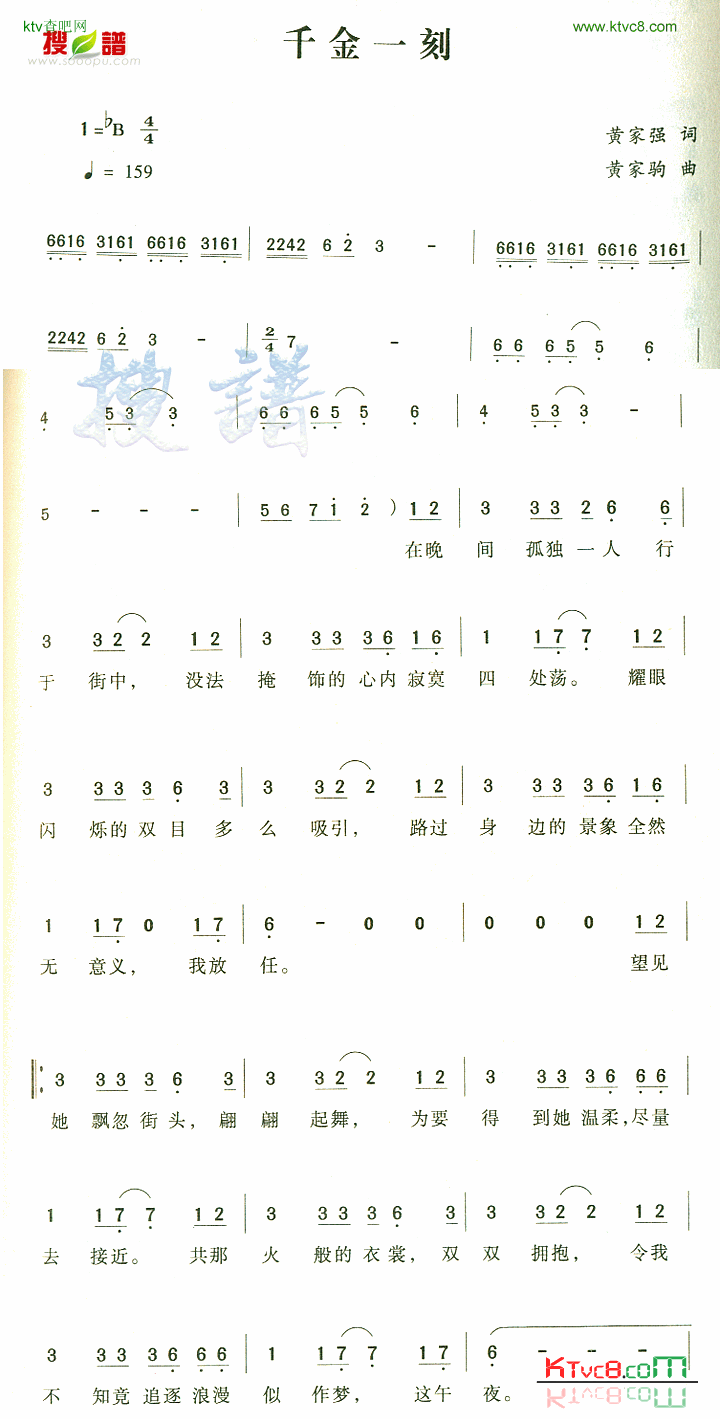 ktv查吧网
www.ktvc8.com
搜谱
www.sooopu.com
千金一刻
1=♭B 4/4
♩= 159
黄家强 词
黄家驹 曲
6616 3161 6616 3161 | 2242 6 2 3 - | 6616 3161 6616 3161 |
2242 6 2 3 - | 2/4 7 - | 6 6 6 5 5 6 |
搜谱
4 5 3 3 | 6 6 6 5 5 6 | 4 5 3 3 - |
5 - - - | 5 6 7 1 2 ) 1 2 | 3 3 3 2 6 6 |
在晚 间 孤独 一 人 行
3 3 2 2 1 2 | 3 3 3 3 6 1 6 | 1 1 7 7 1 2 |
于 街中, 没法 掩 饰的 心内 寂寞 四 处荡。 耀眼
3 3 3 3 6 3 | 3 3 2 2 1 2 | 3 3 3 3 6 1 6 |
闪 烁的 双 目 多 么 吸引, 路过 身 边的 景象 全然
1 1 7 0 1 7 | 6 - 0 0 | 0 0 0 1 2 |
无 意义, 我放 任。 望见
3 3 3 3 6 3 | 3 3 2 2 1 2 | 3 3 3 3 6 6 6 |
她 飘忽 街 头, 翩 翩 起舞, 为要 得 到她 温柔, 尽量
1 1 7 7 1 2 | 3 3 3 3 6 3 | 3 3 2 2 1 2 |
去 接近。 共那 火 般的 衣 裳, 双 双 拥抱, 令我
3 3 3 3 6 6 6 | 1 1 7 7 1 7 | 6 - - - |
不 知竟 追逐 浪漫 似 作梦, 这午 夜。
KTVC8.COM